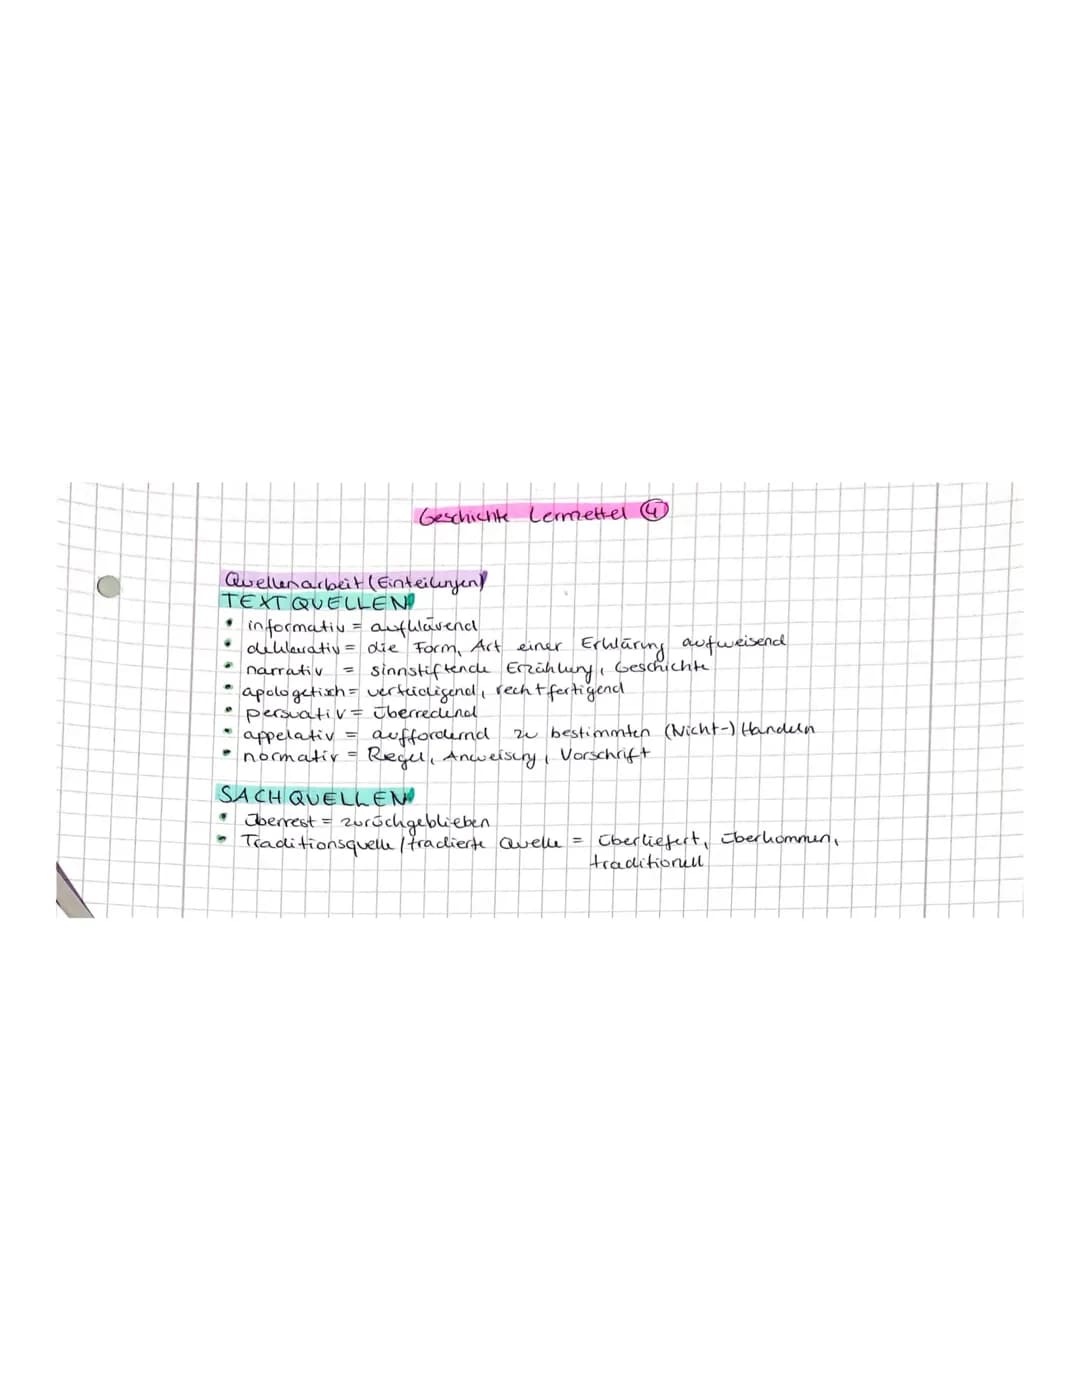 Geschichte Lernzettel ④
Quellenarbeit (Einteilungen)
TEXTQUELLEN
• informativ = aufklärend
• deklarativ = die Form, Art einer Erklärung aufweisend
• narrativ = sinnstiftende Erzählung, Geschichte
• apologetisch = verteidigend, rechtfertigend
• persuativ = überredend
• appelativ = auffordernd zu bestimmten (Nicht-) Handeln
• normativ = Regel, Anweisung, Vorschrift
SACHQUELLEN
• Überrest = zurückgeblieben
• Traditionsquelle / tradierte Quelle = überliefert, überkommen,
traditionell